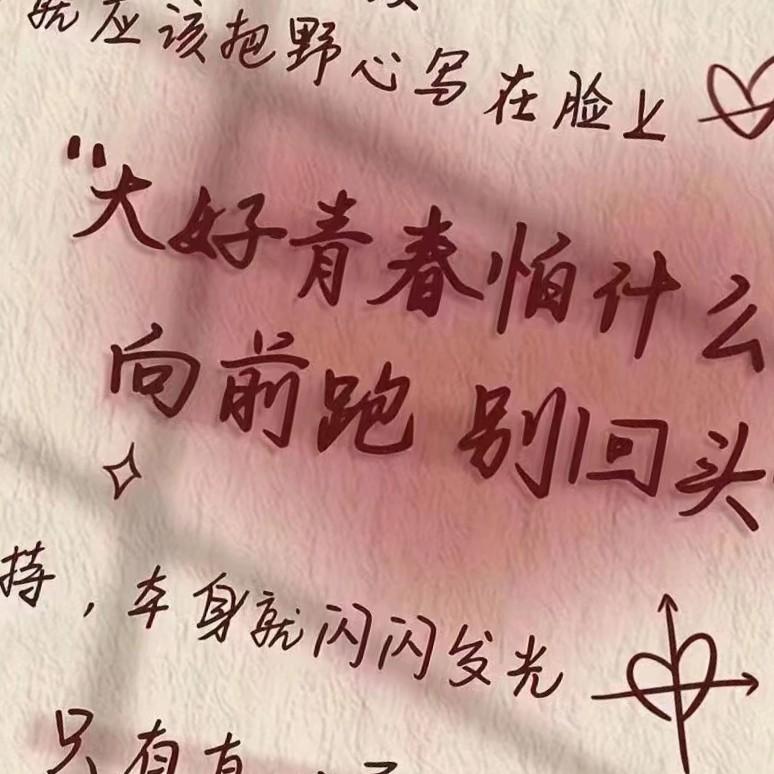 就应该把野心写在脸上
"大好青春怕什么
向前跑 别回头
持，本身就闪闪发光
只有